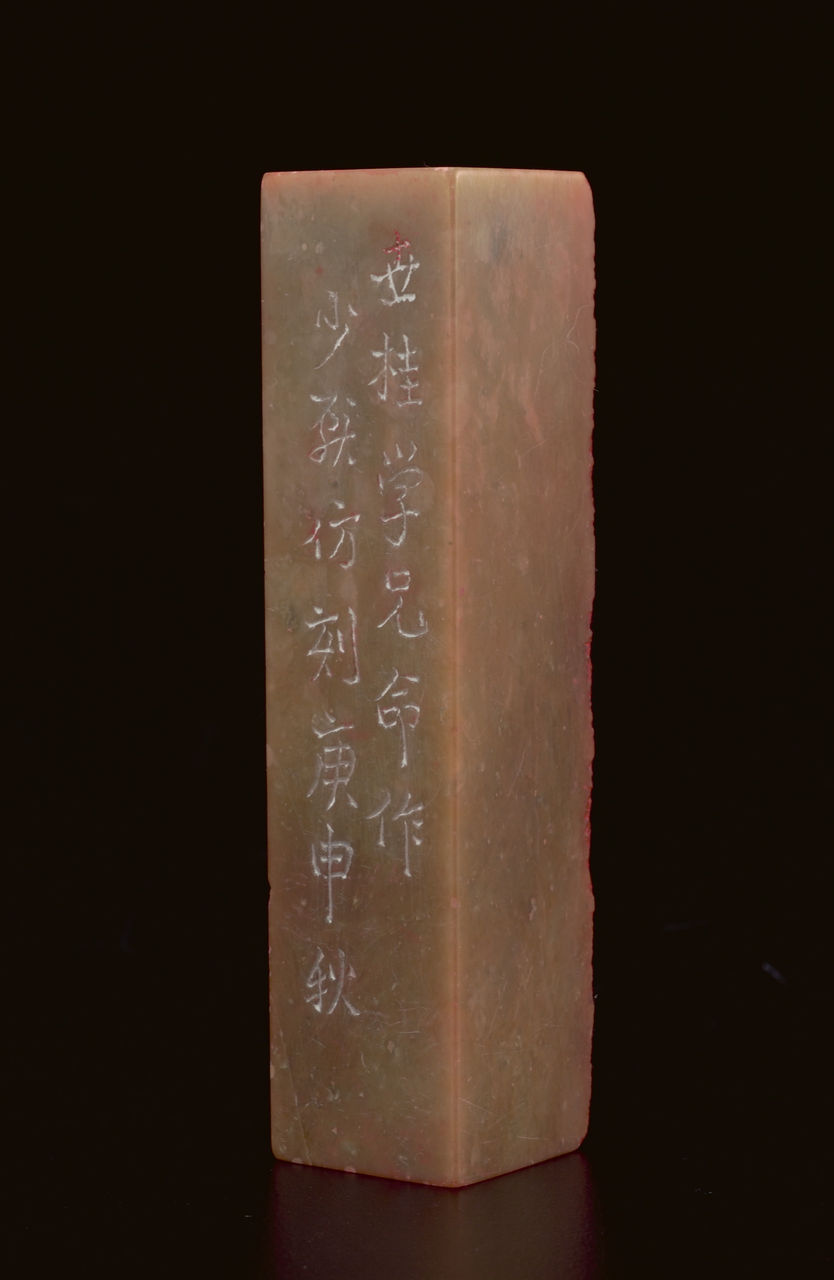 世桂学兄命作
少 仿刻庚申秋